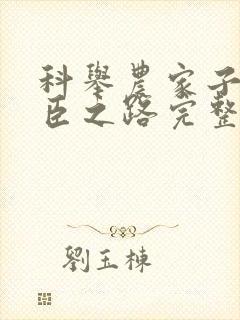 科舉農家子
臣之路完整
劉玉棟